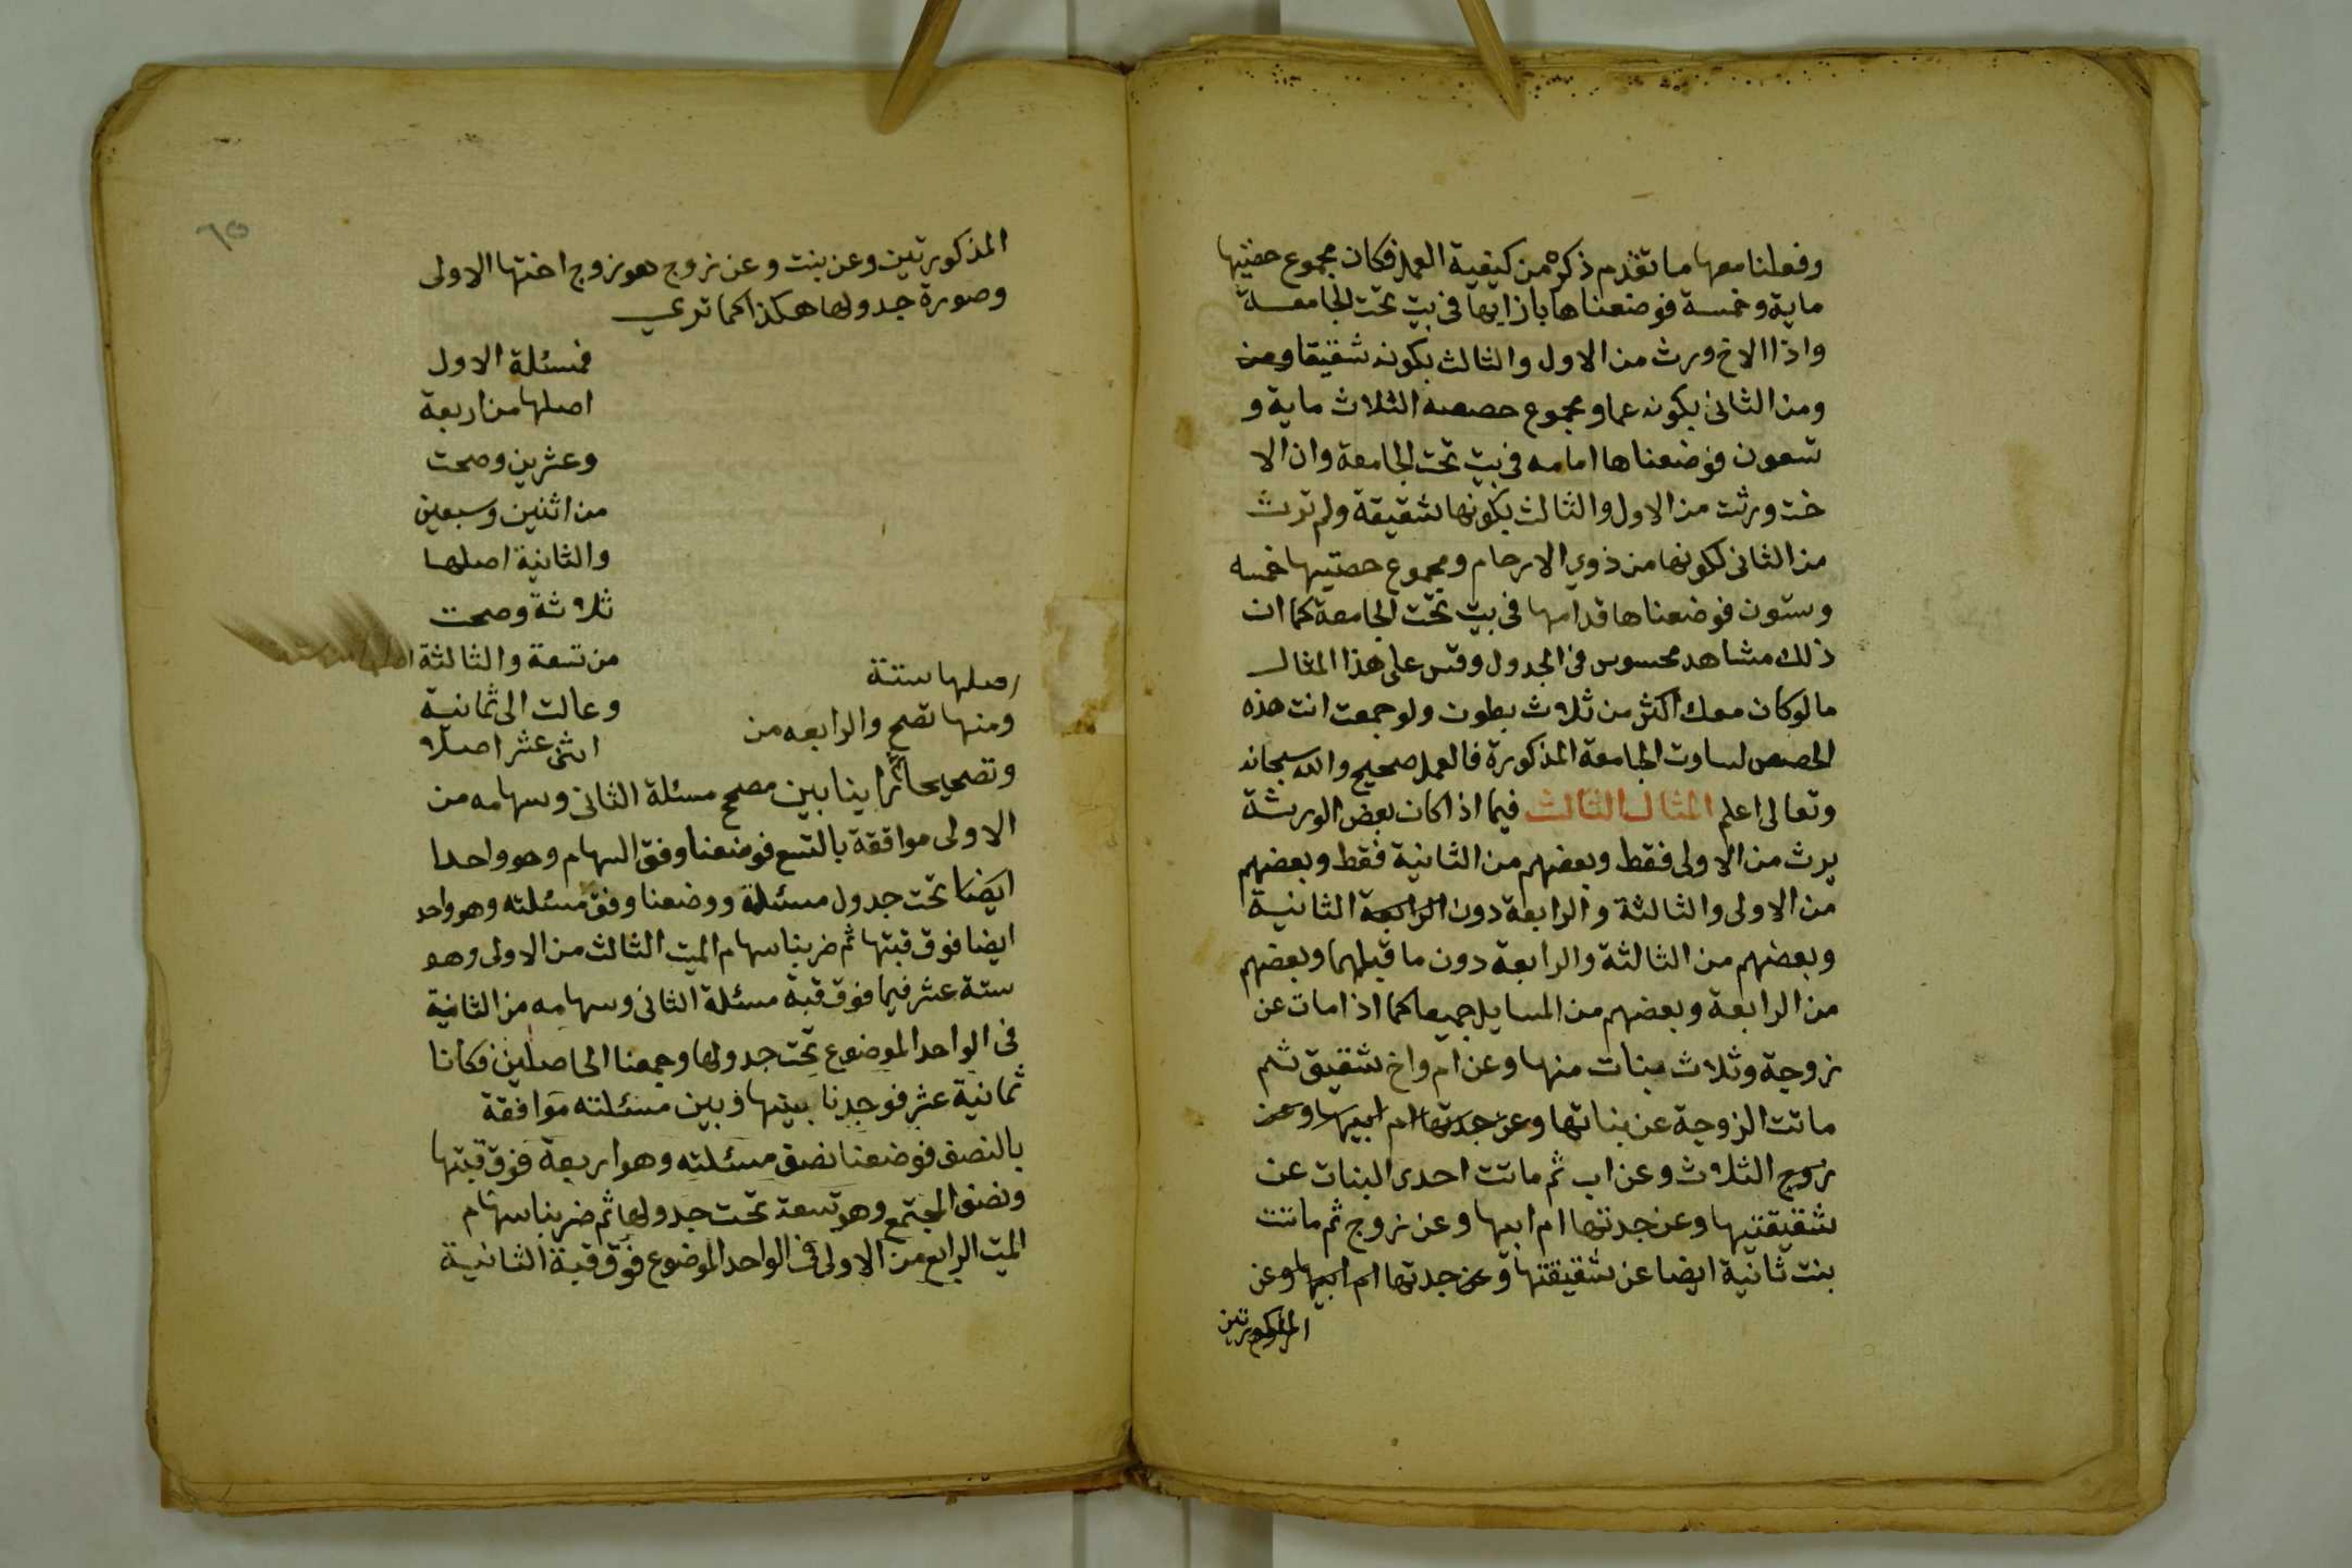 وفعلنا معها ما تقدم ذكره من كيفية العمل فكان مجموع حصتيها
ماية وخمسة فوضعناها بازايها في بيت تحت الجامعة
واذا الاخ ورث من الاول والثالث بكونه شقيقا ومن
ومن الثاني بكونه عما ومجموع حصصه الثلاث ماية و
تسعون فوضعناها امامه في بيت تحت الجامعة وان الا
خت ورثت من الاول والثالث بكونها شقيقة ولم ترث
من الثاني لكونها من ذوي الارحام ومجموع حصتيها خمسه
وستون فوضعناها قدامها في بيت تحت الجامعة كما ان
ذلك مشاهد محسوس في الجدول وقس على هذا المثال
ما لو كان معك اكثر من ثلاث بطون ولو جمعت انت هذه
الحصص لساوت الجامعة المذكورة فالعمل صحيح والله سبحانه
وتعالى اعلم المثال الثالث فيما اذا كان بعض الورثة
يرث من الاولى فقط وبعضهم من الثانية فقط وبعضهم
من الاولى والثالثة والرابعة دون الرابعة الثانية
وبعضهم من الثالثة والرابعة دون ما قبلهما وبعضهم
من الرابعة وبعضهم من المسايل جميعا كما اذا مات عن
زوجة وثلاث بنات منها وعن ام واخ شقيق ثم
ماتت الزوجة عن بناتها وعن جدتها ام ابيها وعن
زوج الثلاث وعن اب ثم ماتت احدى البنات عن
شقيقتيها وعن جدتها ام ابيها وعن زوج ثم ماتت
بنت ثانية ايضا عن شقيقتها وعن جدتها ام ابيها وعن
المذكورتين
٦٥
المذكورتين وعن بنت وعن زوج هو زوج اختها الاولى
وصورة جدولها هكذا كما تري
فمسئلة الاول
اصلها من اربعة
وعشرين وصحت
من اثنين وسبعين
والثانية اصلها
ثلاثة وصحت
من تسعة والثالثة
اصلها ستة
وعالت الى ثمانية
ومنها تصح والرابعه من
اثنى عشر اصلا
وتصحيحا ثم راينا بين مصحح مسئلة الثاني وسهامه من
الاولى موافقة بالتسع فوضعنا وفق السهام وهو واحدا
ايضا تحت جدول مسئلة ووضعنا وفق مسئلته وهو واحد
ايضا فوق قبتها ثم ضربنا سهام الميت الثالث من الاولى وهو
ستة عشر فيما فوق قبة مسئلة الثاني وسهامه من الثانية
في الواحد الموضوع تحت جدولها وجمعنا الحاصلين فكانا
ثمانية عشر فوجدنا بينها وبين مسئلته موافقة
بالنصف فوضعنا نصف مسئلته وهو اربعة فوق قبتها
ونصف المجتمع وهو تسعة تحت جدولها ثم ضربنا سهام
الميت الرابع من الاولى في الواحد الموضوع فوق قبة الثانية